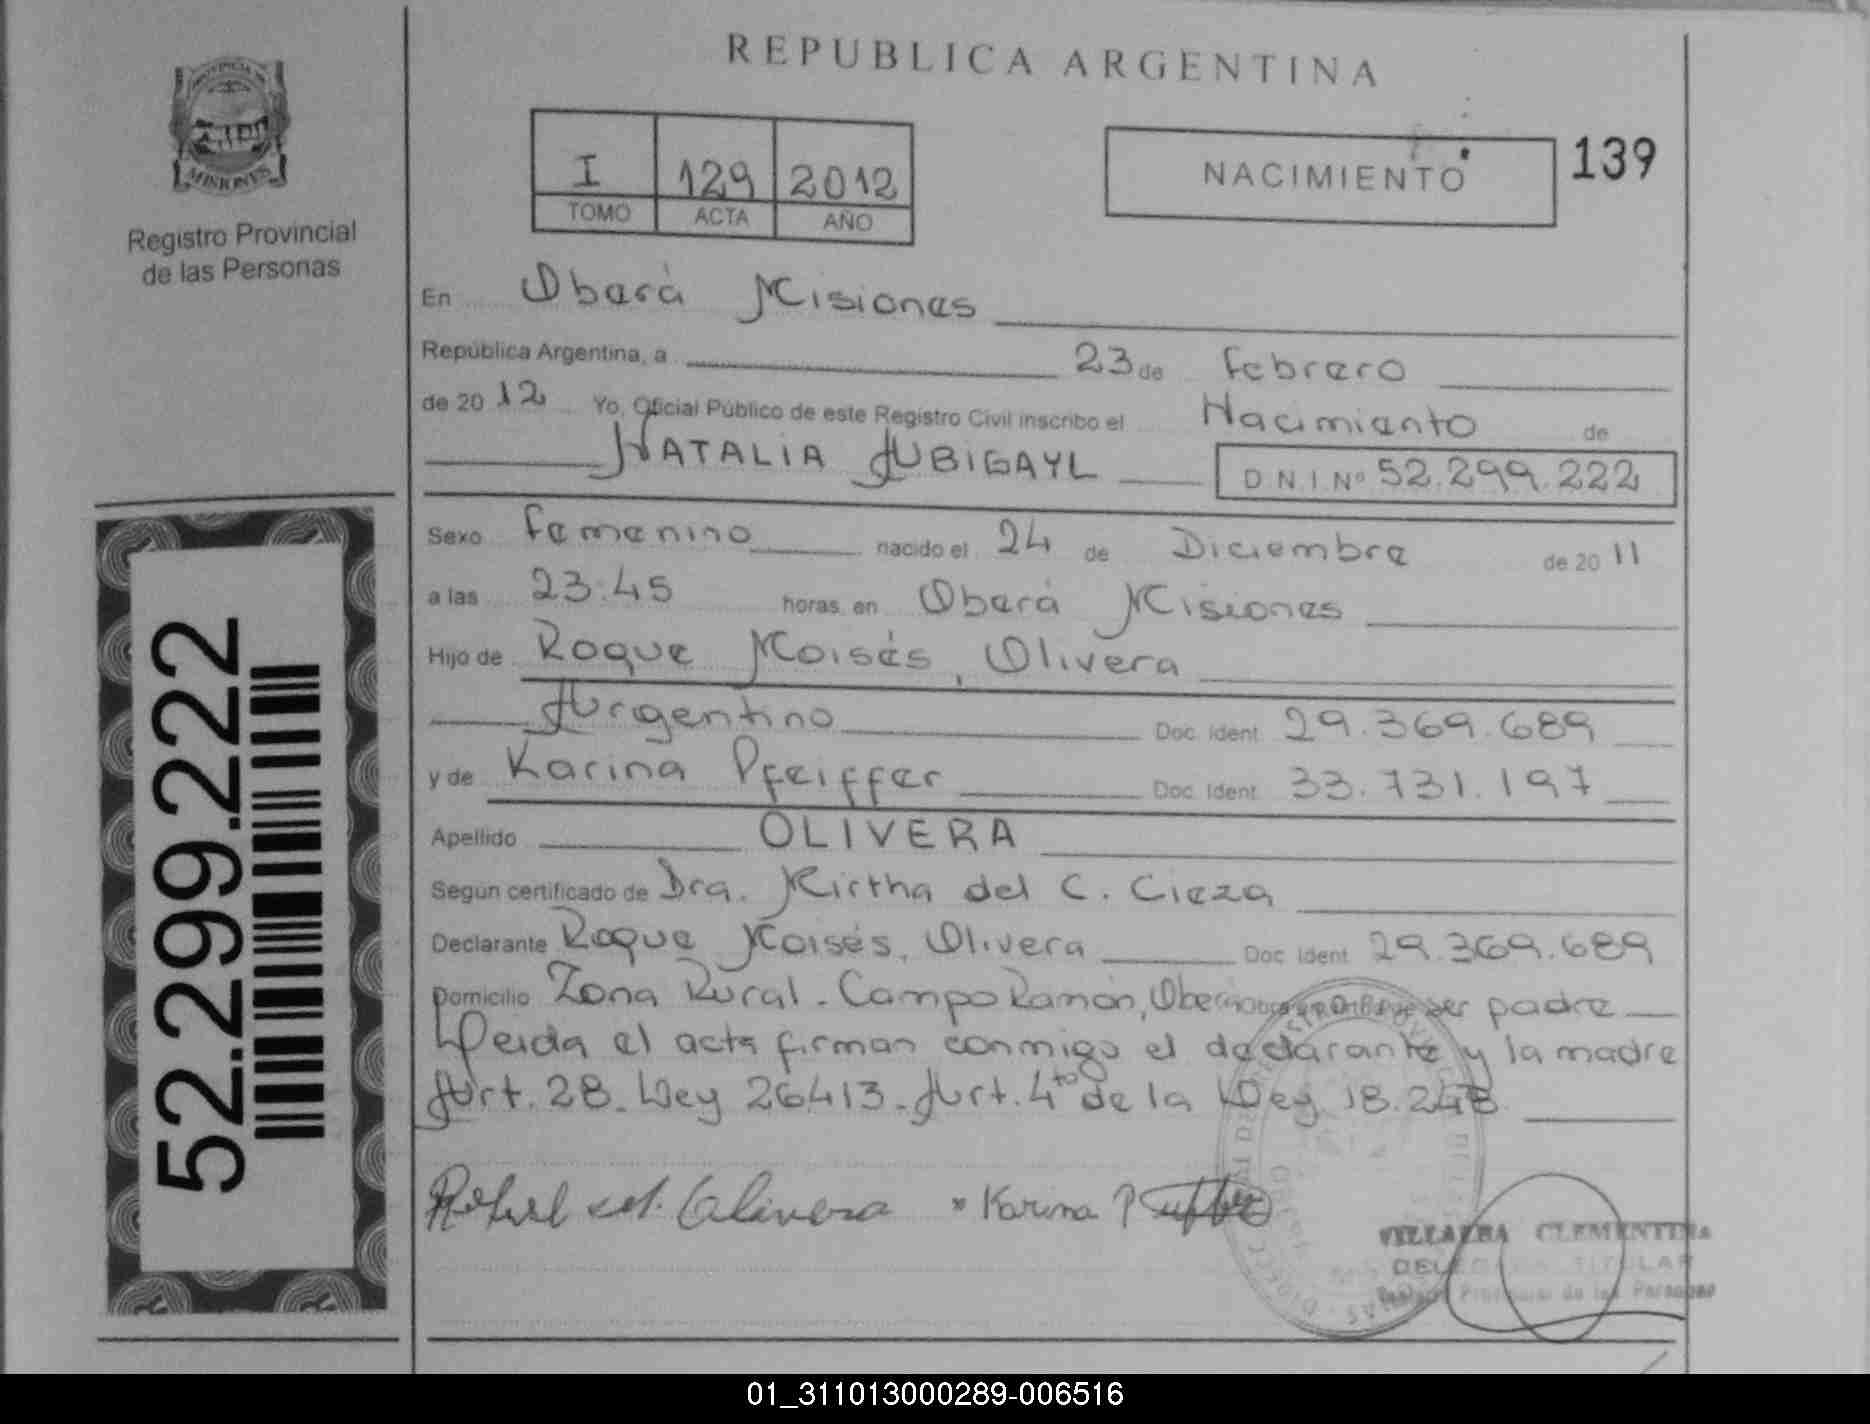 REPUBLICA ARGENTINA
PROVINCIA DE
MISIONES
Registro Provincial
de las Personas
I 129 2012
TOMO ACTA AÑO
NACIMIENTO
139
En Oberá Misiones
República Argentina, a 23 de Febrero
de 20 12 Yo, Oficial Público de este Registro Civil inscribo el Nacimiento de
NATALIA ABIGAYL D.N.I. Nº 52.299.222
Sexo Femenino nacido el 24 de Diciembre de 20 11
a las 23:45 horas, en Oberá Misiones
Hijo de Roque Moisés, Olivera
Argentino Doc. Ident. 29.369.689
y de Karina Pfeiffer Doc. Ident. 33.731.197
Apellido OLIVERA
Según certificado de Dra. Mirtha del C. Cieza
Declarante Roque Moisés, Olivera Doc. Ident. 29.369.689
Domicilio Zona Rural - Campo Ramón, Oberá ser padre
Leida el acta firman conmigo el declarante y la madre
Art. 28 - Ley 26413 - Art. 4to de la Ley 18.248
Olivera Karina
VILLALBA CLEMENTINA
DELEGADA TITULAR
Registro Provincial de las Personas
52.299.222
01_311013000289-006516